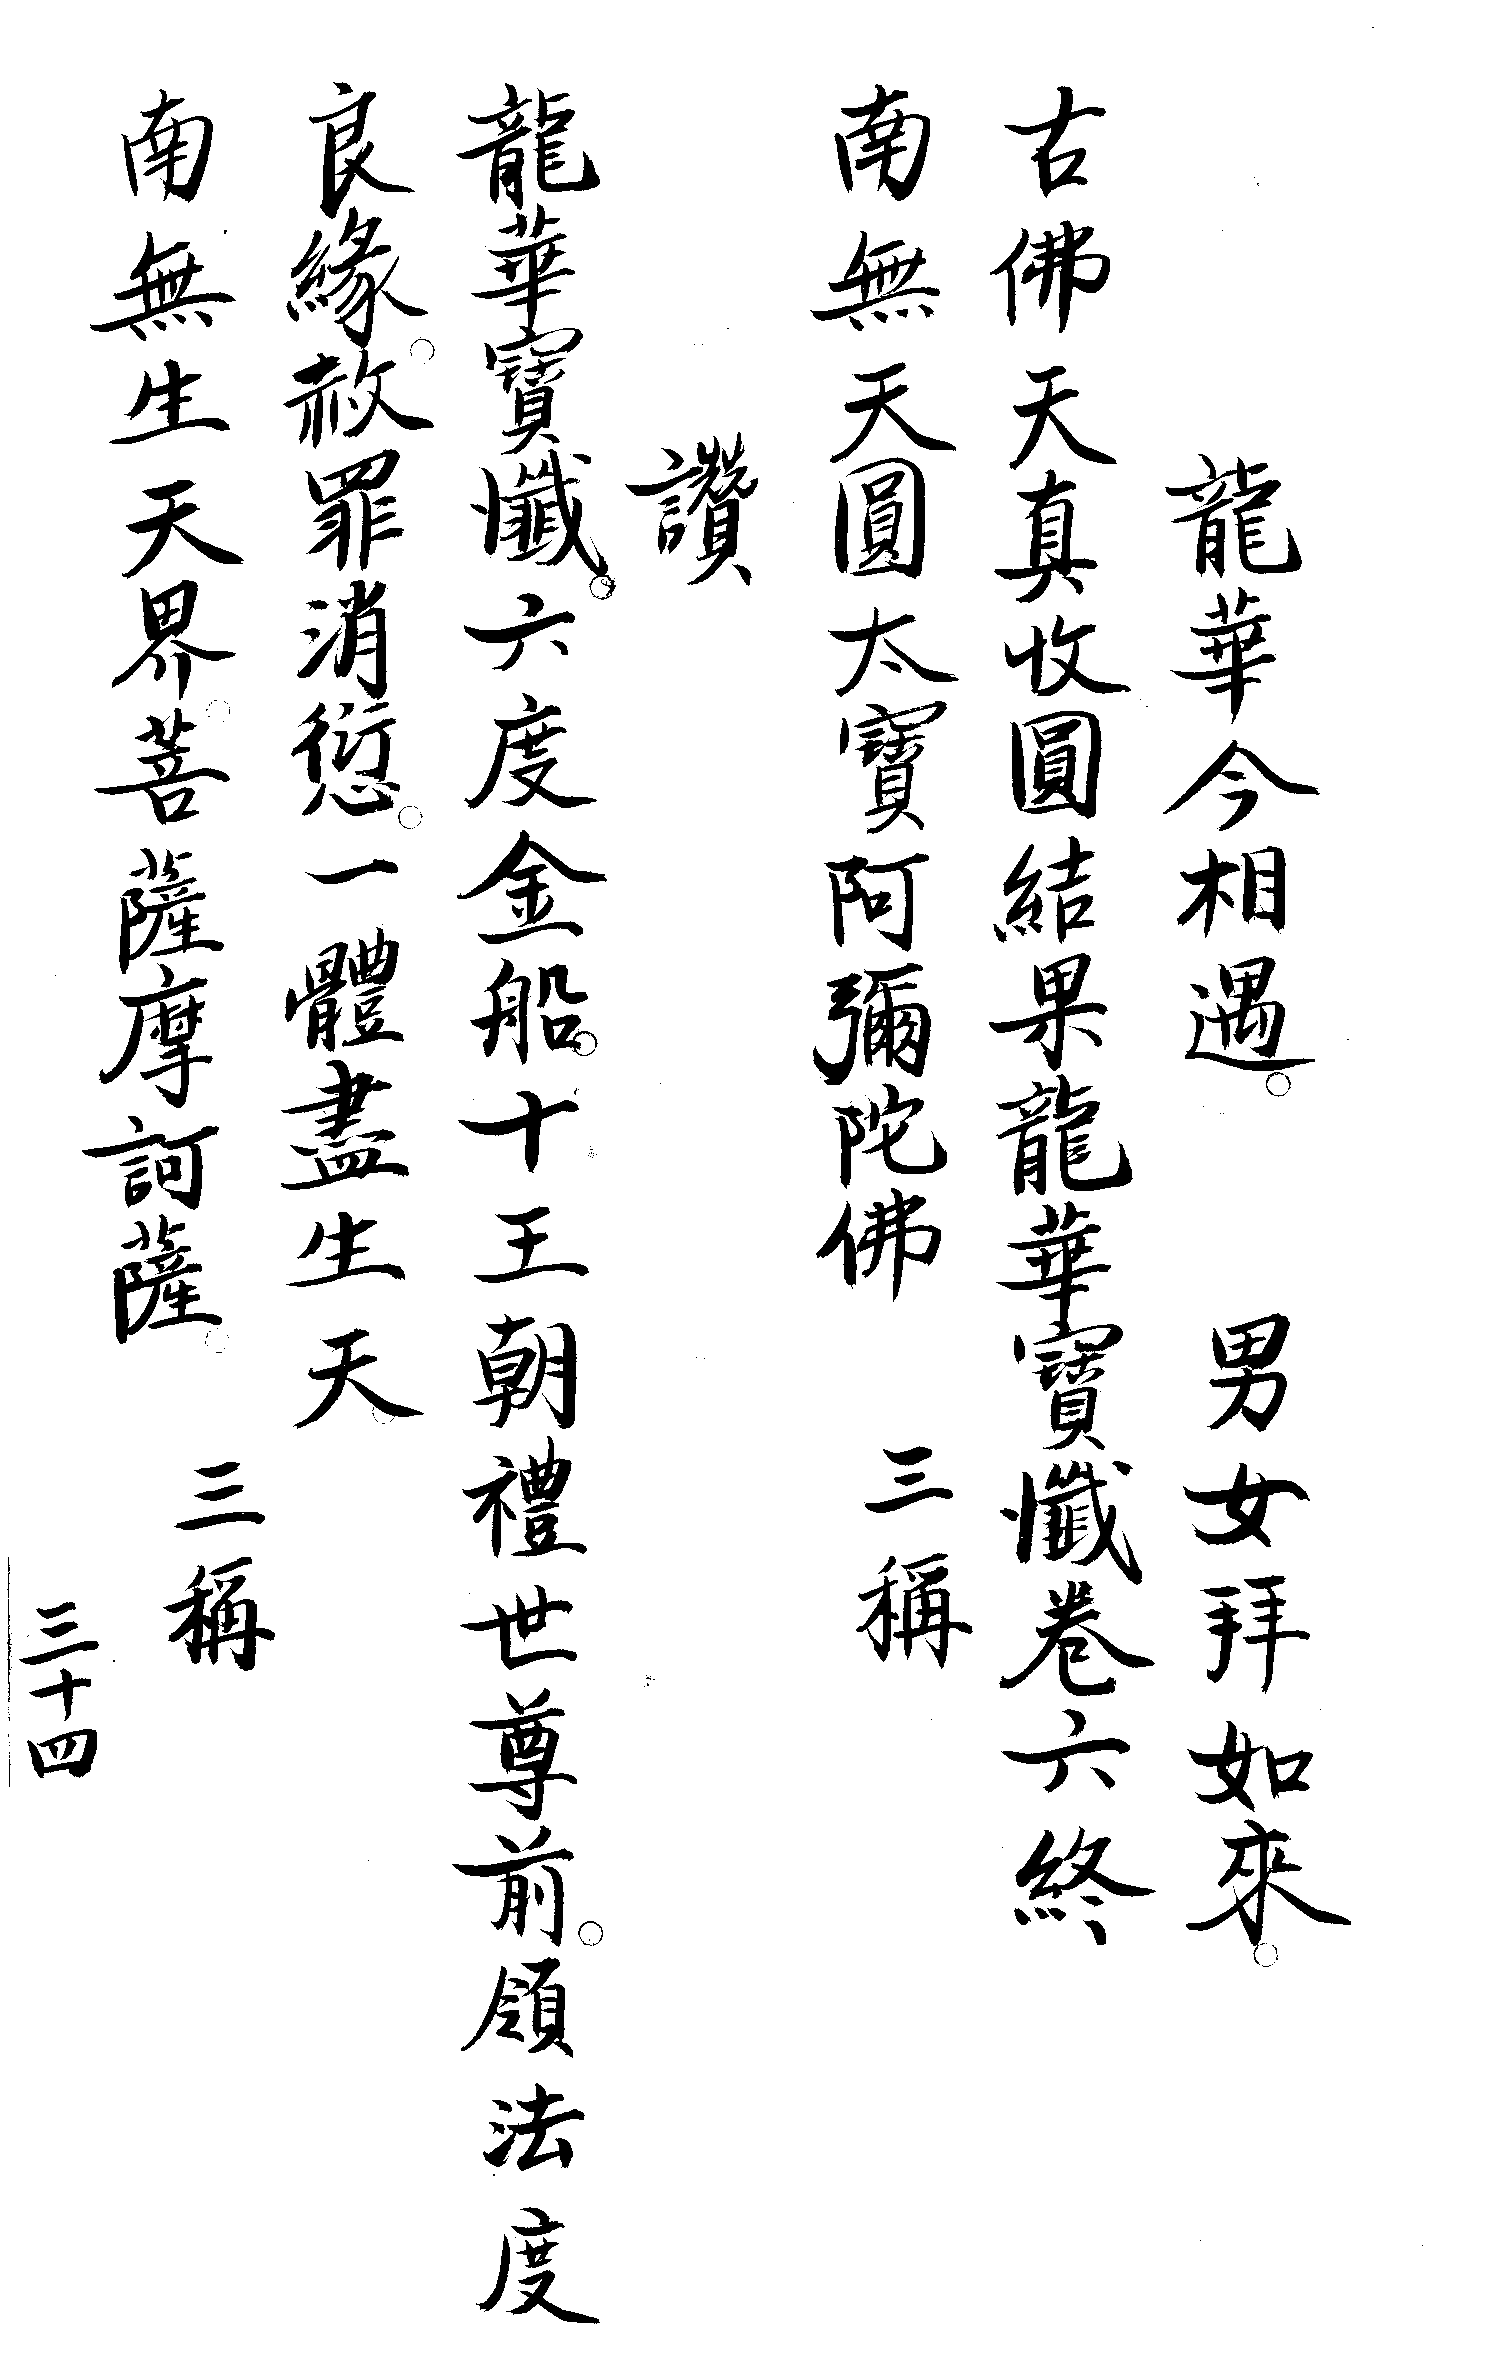 龍華今相遇。　男女拜如來。
古佛天真收圓結果龍華寶懺卷六終
南無天圓太寶阿彌陀佛　三稱
讚
龍華寶懺。六度金船。十王朝禮世尊前。領法度
良緣。赦罪消愆。一體盡生天。
南無生天界。菩薩摩訶薩。　三稱
三十四